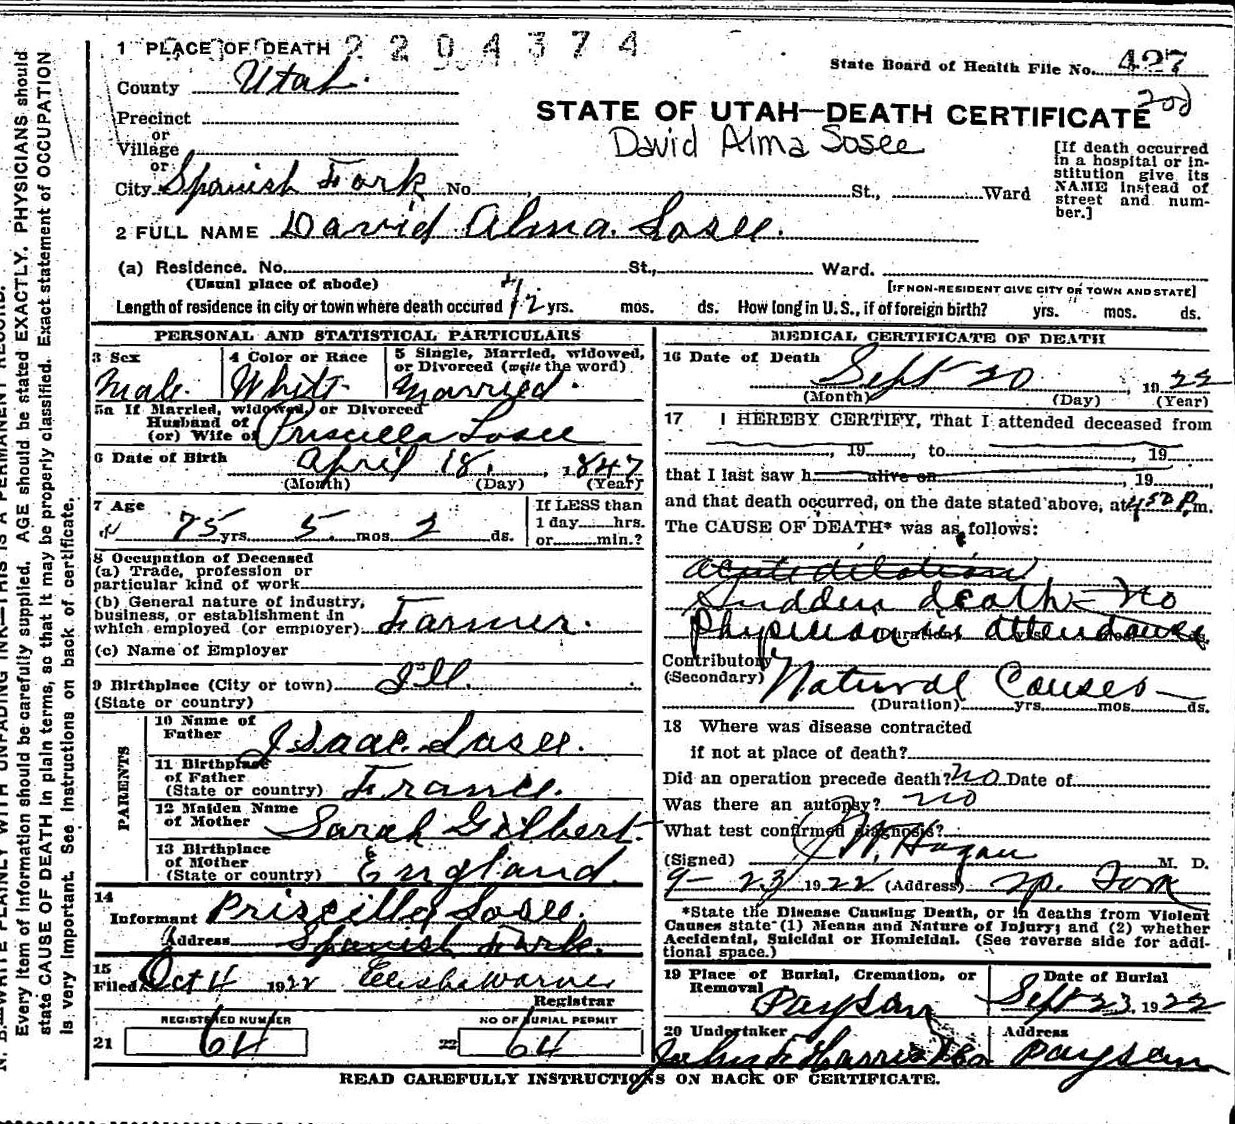 1 PLACE OF DEATH 2204374
State Board of Health File No. 427
County Utah
Precinct
or
Village
or
City Spanish Fork No. St., Ward
STATE OF UTAH—DEATH CERTIFICATE
David Alma Sosee
[If death occurred
in a hospital or in-
stitution give its
NAME instead of
street and num-
ber.]
2 FULL NAME David Alma Losee.
(a) Residence. No. St., Ward.
(Usual place of abode)
[IF NON-RESIDENT GIVE CITY OR TOWN AND STATE]
Length of residence in city or town where death occured yrs. mos. ds. How long in U. S., if of foreign birth? yrs. mos. ds.
PERSONAL AND STATISTICAL PARTICULARS
3 Sex
Male
4 Color or Race
White
5 Single, Married, widowed,
or Divorced (write the word)
Married.
5a If Married, widowed, or Divorced
Husband of
(or) Wife of Priscilla Losee
6 Date of Birth April 18, 1847
(Month) (Day) (Year)
7 Age
75 yrs. 5 mos. 2 ds.
If LESS than
1 day hrs.
or min.?
8 Occupation of Deceased
(a) Trade, profession or
particular kind of work
(b) General nature of industry,
business, or establishment in
which employed (or employer) Farmer.
(c) Name of Employer
9 Birthplace (City or town) Ill.
(State or country)
PARENTS
10 Name of
Father Isaac Losee.
11 Birthplace
of Father
(State or country) France.
12 Maiden Name
of Mother Sarah Gilbert.
13 Birthplace
of Mother
(State or country) England.
14
Informant Priscilla Losee.
Address Spanish Fork.
15
Filed Oct 4 1922 Elisha Warner
Registrar
REGISTERED NUMBER
21 64
NO OF BURIAL PERMIT
22 64
MEDICAL CERTIFICATE OF DEATH
16 Date of Death Sept 20 1922
(Month) (Day) (Year)
17 I HEREBY CERTIFY, That I attended deceased from
, 19 , to , 19
that I last saw h alive on , 19 ,
and that death occurred, on the date stated above, at P m.
The CAUSE OF DEATH* was as follows:
acute dilation
Sudden death – no
physician in attendance
(Duration)
Contributory
(Secondary) Natural Causes
(Duration) yrs. mos. ds.
18 Where was disease contracted
if not at place of death?
Did an operation precede death? no Date of
Was there an autopsy? no
What test confirmed diagnosis?
(Signed) J W. Hagan M. D.
9-23 1922 (Address) Sp. Fork
*State the Disease Causing Death, or in deaths from Violent
Causes state (1) Means and Nature of Injury; and (2) whether
Accidental, Suicidal or Homicidal. (See reverse side for addi-
tional space.)
19 Place of Burial, Cremation, or
Removal
Payson
Date of Burial
Sept 23, 1922
20 Undertaker
Address
Payson
READ CAREFULLY INSTRUCTIONS ON BACK OF CERTIFICATE.
N. B.—WRITE PLAINLY WITH UNFADING INK—THIS IS A PERMANENT RECORD.
Every item of information should be carefully supplied. AGE should be stated EXACTLY. PHYSICIANS should
state CAUSE OF DEATH in plain terms, so that it may be properly classified. Exact statement of OCCUPATION
is very important. See instructions on back of certificate.